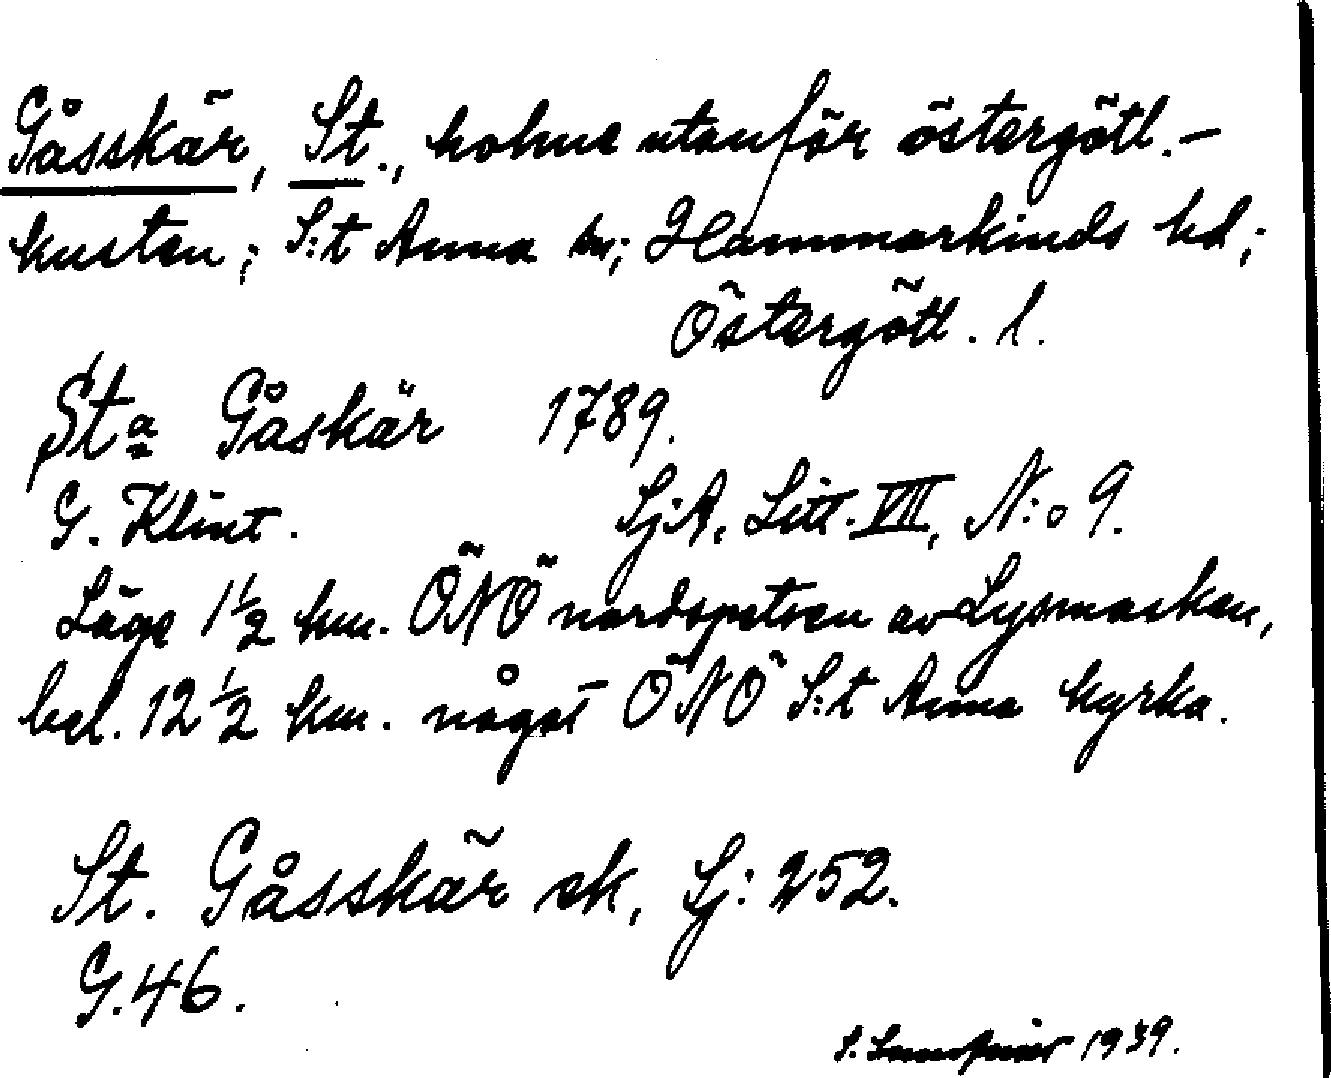 Gåsskär, St., holme utanför östergötl.-
kusten; S:t Anna sn; Hammarkinds hd;
Östergötl. l.
Sta Gåskär 1789.
G. Klint. Sj:A, Litt. VIII, N:o 9.
Läge 1 1/2 km. ÖNÖ nordspetsen av Lysmaskan,
bel. 12 1/2 km. något ÖNÖ S:t Anna kyrka.
St. Gåsskär ek, Sj: 252.
G.46.
S. 1939.